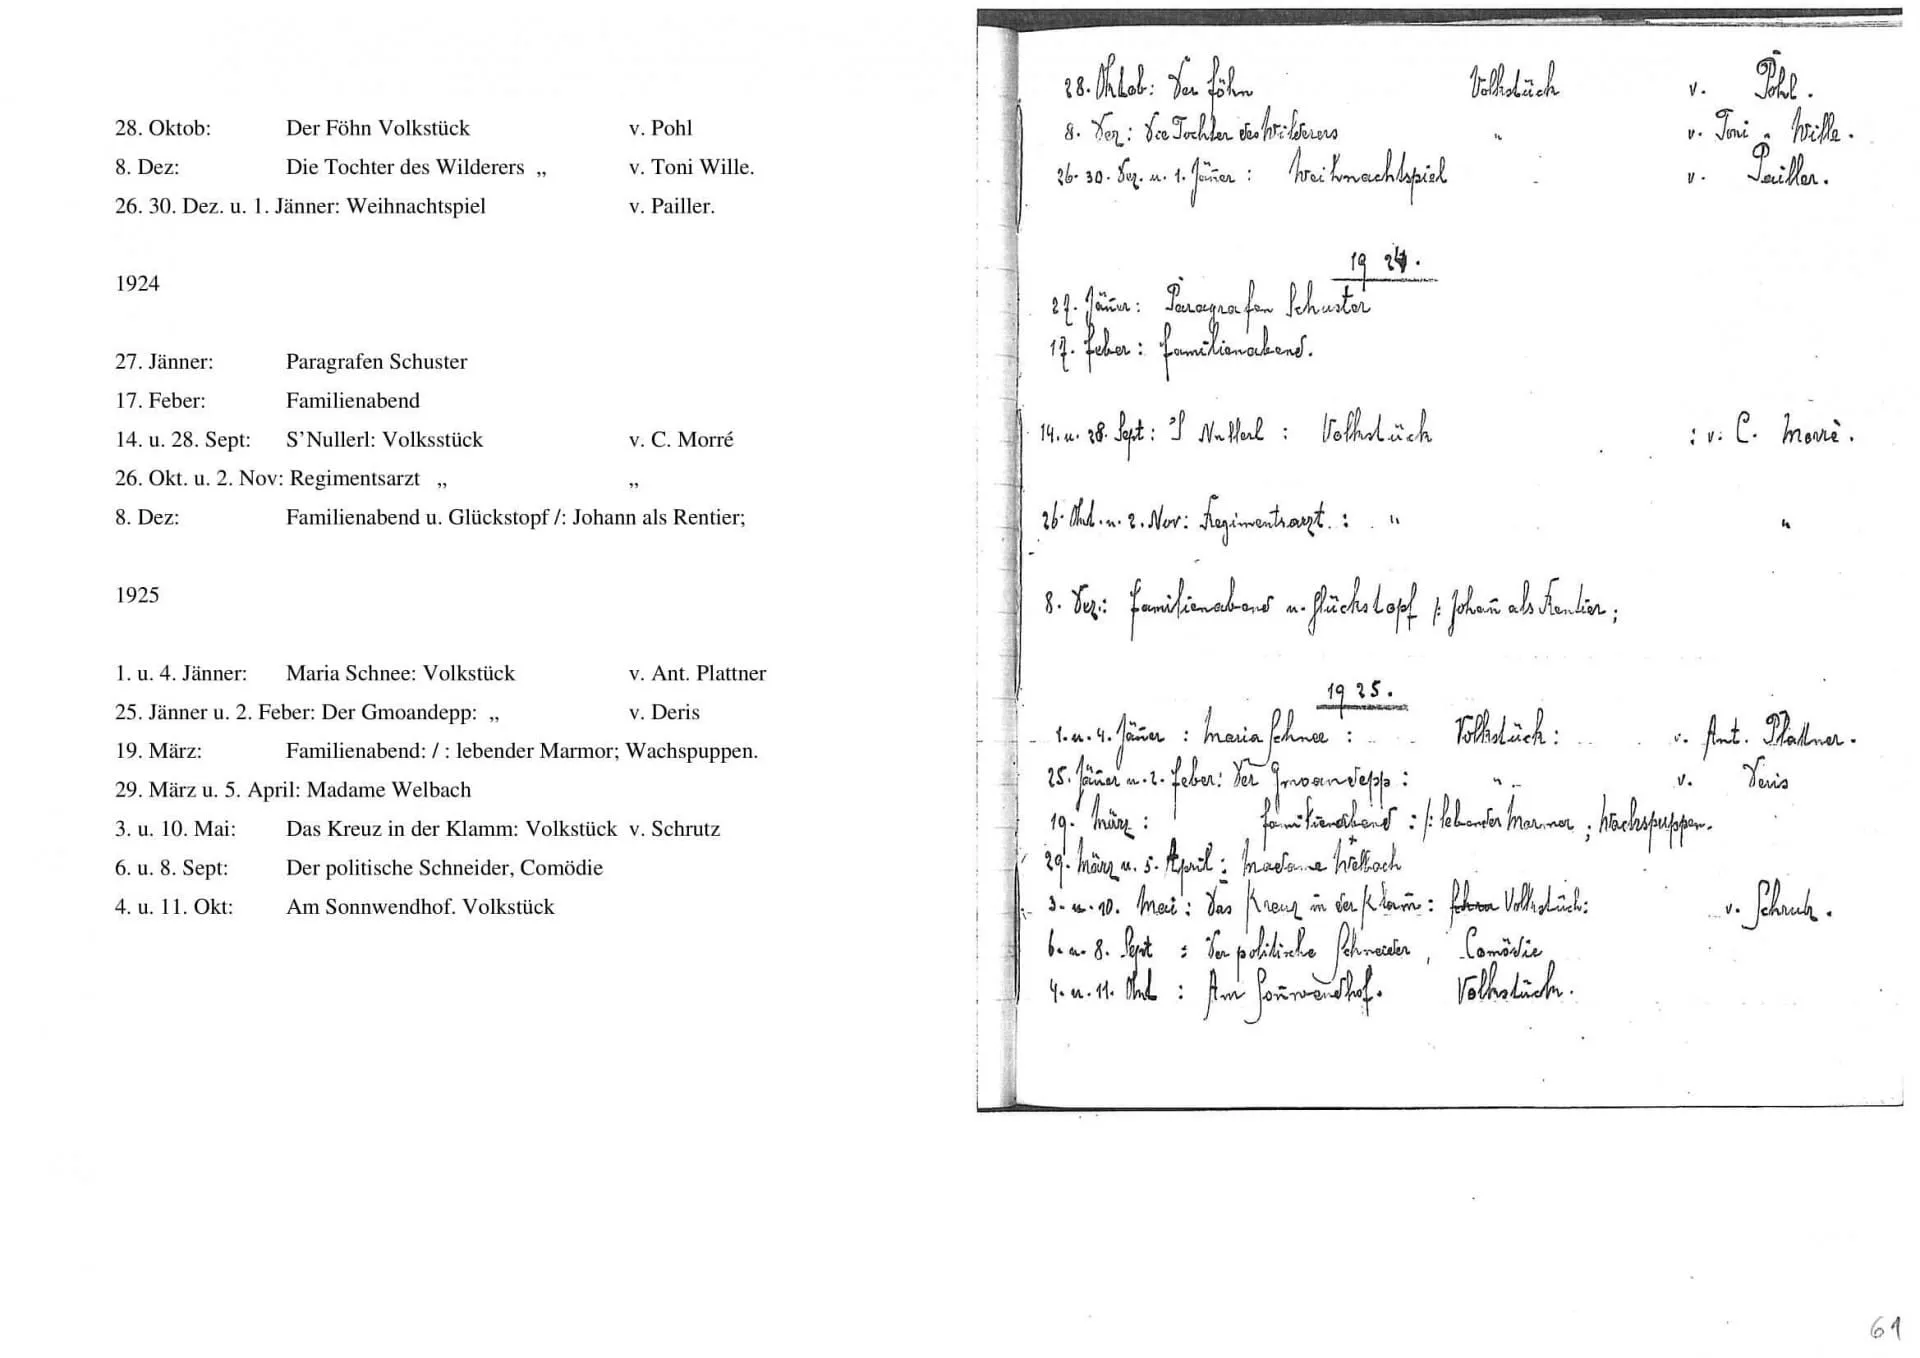 28. Oktob: Der Föhn Volkstück v. Pohl
8. Dez: Die Tochter des Wilderers „ v. Toni Wille.
26. 30. Dez. u. 1. Jänner: Weihnachtspiel v. Pailler.
1924
27. Jänner: Paragrafen Schuster
17. Feber: Familienabend
14. u. 28. Sept: S’Nullerl: Volksstück v. C. Morré
26. Okt. u. 2. Nov: Regimentsarzt „ „
8. Dez: Familienabend u. Glückstopf /: Johann als Rentier;
1925
1. u. 4. Jänner: Maria Schnee: Volkstück v. Ant. Plattner
25. Jänner u. 2. Feber: Der Gmoandepp: „ v. Deris
19. März: Familienabend: / : lebender Marmor; Wachspuppen.
29. März u. 5. April: Madame Welbach
3. u. 10. Mai: Das Kreuz in der Klamm: Volkstück v. Schrutz
6. u. 8. Sept: Der politische Schneider, Comödie
4. u. 11. Okt: Am Sonnwendhof. Volkstück
28. Oktob: Der Föhn Volkstück v. Pohl.
8. Dez: Die Tochter des Wilderers " v. Toni Wille.
26. 30. Dez. u. 1. Jäner: Weihnachtspiel v. Pailler.
1924.
27. Jäner: Paragrafen Schuster
17. Feber: Familienabend.
14. u. 28. Sept: 'S Nullerl: Volkstück : v. C. Morrè.
26. Okt. u. 2. Nov: Regimentsarzt. : " "
8. Dez.: Familienabend u. Glückstopf /: Johan̄ als Rentier;
1925.
1. u. 4. Jäner: Maria Schnee: Volkstück: v. Ant. Plattner.
25. Jäner u. 2. Feber: Der Gmoandepp: " v. Deris
19. März: Familienabend: /: lebender Marmor; Wachspuppen.
29. März u. 5. April: Madame Welbach
3. u. 10. Mai: Das Kreuz in der Klam̄: Volkstück: v. Schrutz.
6. u. 8. Sept: Der politische Schneider, Comödie
4. u. 11. Okt: Am Son̄wendhof. Volkstück.
61